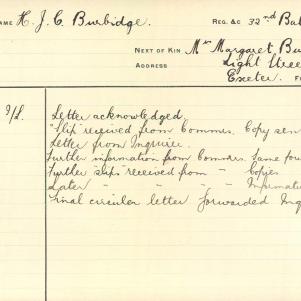 NAME H. J. C. Burbidge. REG. &c 32nd Bat
NEXT OF KIN Mrs Margaret, Bu
ADDRESS Light Stree
Exeter.
Letter acknowledged.
"Slip" received from Commrs. Copy sen
Letter from Inquirer.
Further information from Commrs. Same for
Further "slips" received from " Copies
Later " " " " Informati
Final circular letter forwarded Inq